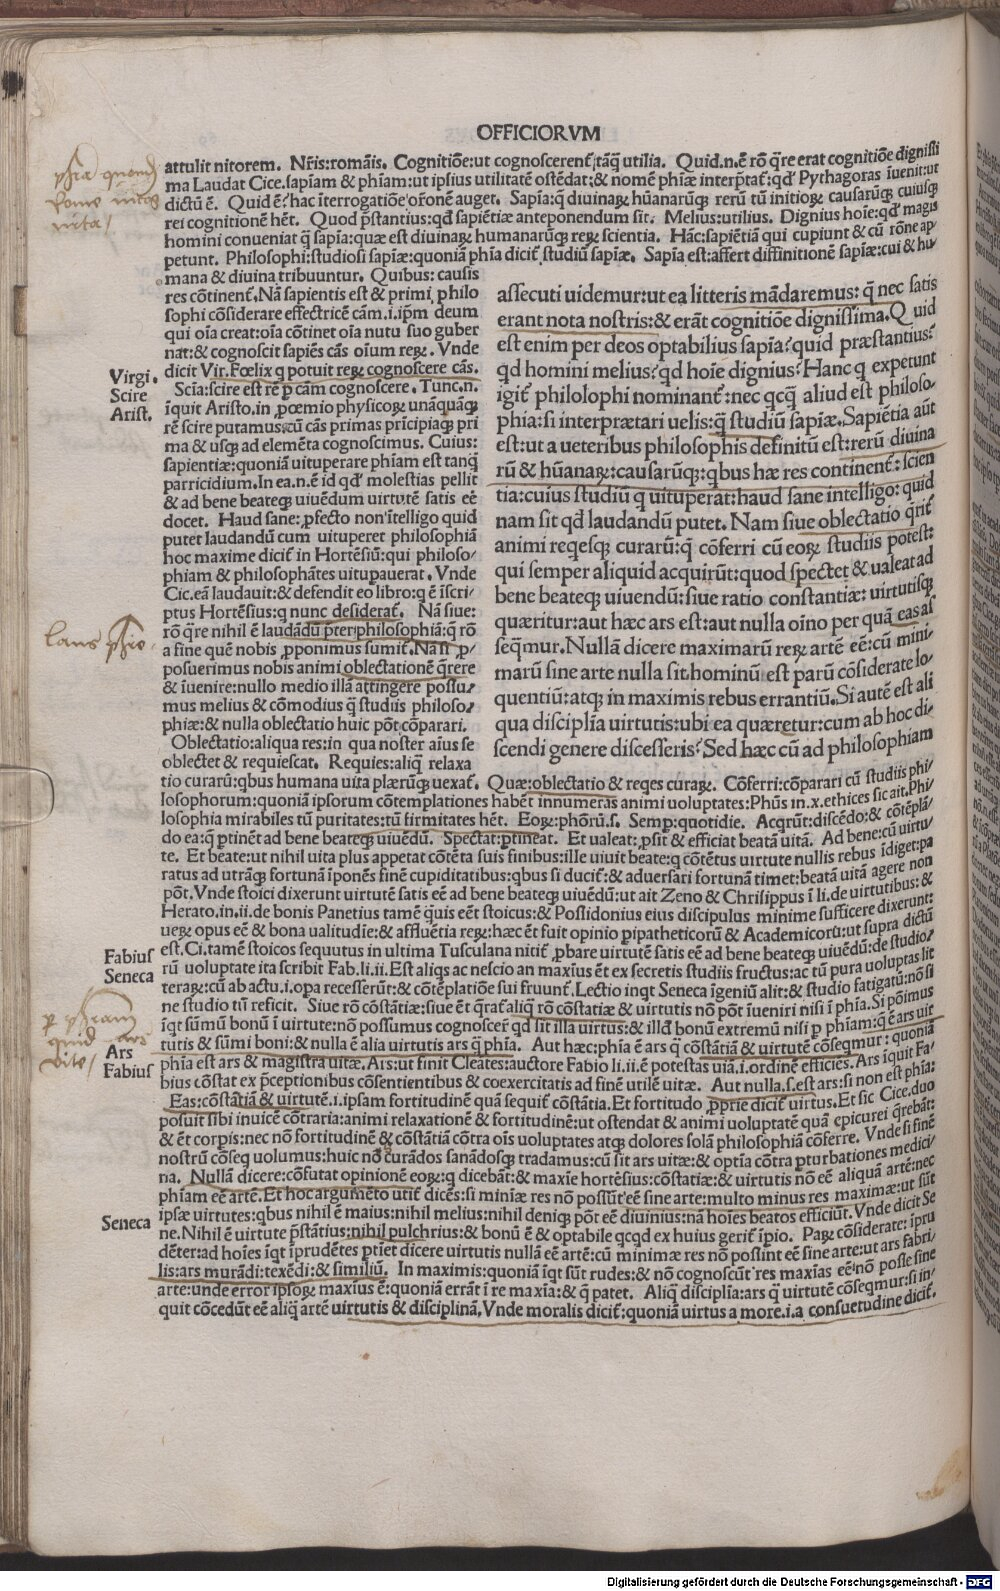 OFFICIORVM
attulit nitorem. Nr̄is:romāis. Cognitiōe:ut cognoscerent̄:tāq̄ utilia. Quid.n.ē rō q̄re erat cognitiōe dignissi
ma Laudat Cice.sapīam & phīam:ut ipsius utilitatē ostēdat:& nomē phīæ interp̄tat̄:qd' Pythagoras īuenit:ut
dictū ē. Quid ē:hac īterrogatiōe orōnē auget. Sapīa:q̄ diuinaꝝ hūanārūqꝫ rerū tū initioꝝ causarūqꝫ cuiusqꝫ
rei cognitionē hēt. Quod p̄stantius:qd' sapiētiæ anteponendum sit. Melius:utilius. Dignius hoīe:qd' magis
homini conueniat q̄ sapīa:quæ est diuinaꝝ humanarūqꝫ reꝝ scientia. Hāc:sapiētiā qui cupiunt & cū rōne ap
petunt. Philosophi:studiosi sapīæ:quoniā phīa dicit̄ studiū sapīæ. Sapīa est:affert diffinitionē sapīæ:cui & hu
mana & diuina tribuuntur. Quibus: causis
res cōtinent̄.Nā sapientis est & primi philo
sophi cōsiderare effectricē cām.i.ip̄m deum
qui oīa creat:oīa cōtinet oīa nutu suo guber
nat:& cognoscit sapiēs cās oīum reꝝ. Vnde
dicit Vir.Fœlix q potuit reꝝ cognoscere cās.
Scīa:scire est rē p cām cognoscere. Tunc.n.
īquit Aristo.in proœmio physicoꝝ unāquāqꝫ
rē scire putamus:cū cās primas prīcipiaqꝫ pri
ma & usqꝫ ad elemēta cognoscimus. Cuius:
sapientiæ:quoniā uituperare phīam est tanq̄
parricidium.In ea.n.ē id qd' molestias pellit
& ad bene beateqꝫ uiuēdum uirtutē satis eē
docet. Haud sane:profecto non ītelligo quid
putet laudandū cum uituperet philosophiā
hoc maxime dicit̄ in Hortēsiū:qui philoso/
phiam & philosophātes uitupauerat. Vnde
Cic.eā laudauit:& defendit eo libro:q ē īscri/
ptus Hortēsius:q nunc desiderat̄. Nā siue:
rō q̄re nihil ē laudādū p̄ter philosophiā:q̄ rō
a fine quē nobis proponimus sumit̄.Nā si pro/
posuerimus nobis animi oblectationē q̄rere
& īuenire:nullo medio illā attingere possu/
mus melius & cōmodius q̄ studiis philoso/
phiæ:& nulla oblectatio huic pōt cōparari.
Oblectatio:aliqua res:in qua noster aīus se
oblectet & requiescat. Requies:aliq̄ relaxa
tio curarū:qbus humana uita plærūqꝫ uexat̄.
assecuti uidemur:ut ea litteris mādaremus: q̄ nec satis
erant nota nostris:& erāt cognitiōe dignissima.Quid
est enim per deos optabilius sapīa?quid præstantius?
qd homini melius?qd hoīe dignius?Hanc q expetunt
igit̄ philolophi nominant̄:nec qcq̄ aliud est philoso-
phia:si interprætari uelis:q̄ studiū sapīæ.Sapiētia aūt
est:ut a ueteribus philosophis definitū est:rerū diuina
rū & hūanaꝝ:causarūqꝫ:qbus hæ res continent̄: scien
tia:cuius studiū q uituperat:haud sane intelligo: quid
nam sit qd laudandū putet. Nam siue oblectatio q̄rit̄
animi reqesqꝫ curarū:q̄ cōferri cū eoꝝ studiis potest:
qui semper aliquid acquirūt:quod spectet & ualeat ad
bene beateqꝫ uiuendū:siue ratio constantiæ: uirtutisqꝫ
quæritur:aut hæc ars est:aut nulla oīno per quā eas as
seq̄mur.Nullā dicere maximarū reꝝ artē eē:cū mini-
marū sine arte nulla sit.hominū est parū cōsiderate lo-
quentiū:atqꝫ in maximis rebus errantiū.Si autē est ali
qua disciplīa uirtutis:ubi ea quæretur:cum ab hoc di-
scendi genere discesseris?Sed hæc cū ad philosophiam
Quæ:oblectatio & reqes curaꝝ. Cōferri:cōparari cū studiis phi/
losophorum:quoniā ipsorum cōtemplationes habēt innumeras animi uoluptates:Phūs in.x.ethices sic ait.Phi/
losophia mirabiles tū puritates:tū firmitates hēt. Eoꝝ:phōrū.s. Semp:quotidie. Acqrūt:discēdo:& cōtēplā/
do ea:q̄ ptinēt ad bene beateqꝫ uiuēdū. Spectat:ptineat. Et ualeat:prosit & efficiat beatā uitā. Ad bene:cū uirtu/
te. Et beate:ut nihil uita plus appetat cōtēta suis finibus:ille uiuit beate:q cōtētus uirtute nullis rebus īdiget:pa
ratus ad utrāqꝫ fortunā īponēs finē cupiditatibus:qbus si ducit̄:& aduersari fortunā timet:beatā uitā agere non
pōt.Vnde stoici dixerunt uirtutē satis eē ad bene beateqꝫ uiuēdū:ut ait Zeno & Chrisippus ī li.de uirtutibus:&
Herato.in.ii.de bonis Panetius tamē q̄uis eēt stoicus:& Possidonius eius discipulus minime sufficere dixerunt:
ueꝝ opus eē & bona ualitudīe:& affluētia reꝝ:hæc ēt fuit opinio pipatheticorū & Academicorū:ut supra dictū
est.Ci.tamē stoicos sequutus in ultima Tusculana nitit̄ probare uirtutē satis eē ad bene beateqꝫ uiuēdū:de studio/
rū uoluptate ita scribit Fab.li.ii.Est aliqs ac nescio an maxīus ēt ex secretis studiis fructus:ac tū pura uoluptas lit
teraꝝ:cū ab actu.i.opa recesserūt:& cōtēplatiōe sui fruunt̄.Lectio inqt Seneca īgeniū alit:& studio fatigatū:nō si
ne studio tū reficit. Siue rō cōstātiæ:siue ēt q̄rat̄ aliq̄ rō cōstatiæ & uirtutis nō pōt īueniri nisi ī phīa.Si pōimus
īqt sūmū bonū ī uirtute:nō possumus cognoscer̄ qd' sit illa uirtus:& illd' bonū extremū nisi p phīam:q̄ ē ars uir
tutis & sūmi boni:& nulla ē alia uirtutis ars q̄ phīa. Aut hæc:phīa ē ars q̄ cōstātiā & uirtutē cōseqmur: quoniā
phīa est ars & magistra uitæ.Ars:ut finit Cleātes:auctore Fabio li.ii.ē potestas uiā.i.ordinē efficiēs.Ars īquit Fa/
bius cōstat ex p̄ceptionibus cōsentientibus & coexercitatis ad finē utilē uitæ. Aut nulla.s.est ars:si non est phīa:
Eas:cōstātiā & uirtutē.i.ipsam fortitudinē quā sequit̄ cōstātia.Et fortitudo proprie dicit̄ uirtus.Et sic Cice.duo
posuit sibi inuicē cōtraria:animi relaxationē & fortitudinē:ut ostendat & animi uoluptatē quā epicurei q̄rebāt:
& ēt corpis:nec nō fortitudinē & cōstātiā cōtra oīs uoluptates atqꝫ dolores solā philosophiā cōferre. Vnde si finē
nostrū cōseq uolumus:huic nos curādos sanādosqꝫ tradamus:cū sit ars uitæ:& optīa cōtra pturbationes medici/
na. Nullā dicere:cōfutat opinionē eoꝝ:q dicebāt:& maxie hortēsius:cōstatiæ:& uirtutis nō eē aliquā artē:nec
phīam eē artē.Et hoc argumēto utit̄ dicēs:si minīæ res nō possūt eē sine arte:multo minus res maximæ:ut sūt
ipsæ uirtutes:qbus nihil ē maius:nihil melius:nihil deniqꝫ pōt eē diuinius:nā hoīes beatos efficiūt.Vnde dicit Se
ne.Nihil ē uirtute p̄stātius:nihil pulchrius:& bonū ē & optabile qcqd ex huius gerit̄ īpio. Paꝝ cōsiderate: īpru
dēter:ad hoīes īqt īprudētes ptīet dicere uirtutis nullā eē artē:cū minimæ res nō possint eē sine arte:ut ars fabri/
lis:ars murādi:texēdi:& similiū. In maximis:quoniā īqt sūt rudes:& nō cognoscūt res maxīas eē nō posse sine
arte:unde error ipsoꝝ maxīus ē:quoniā errāt ī re maxīa:& q̄ patet. Aliq̄ disciplīa:ars q̄ uirtutē cōseqmur:si in/
quit cōcedūt eē aliq̄ artē uirtutis & disciplinā.Vnde moralis dicit̄:quoniā uirtus a more.i.a consuetudine dicit̄.
Virgi.
Scire
Arist.
laus
Fabius
Seneca
quid ars
vite
Ars
Fabius
Seneca
Digitalisierung gefördert durch die Deutsche Forschungsgemeinschaft - DFG